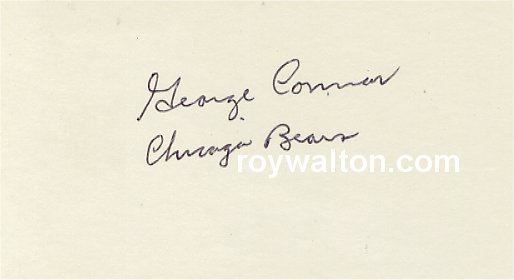 George Connor
Chicago Bears
roywalton.com